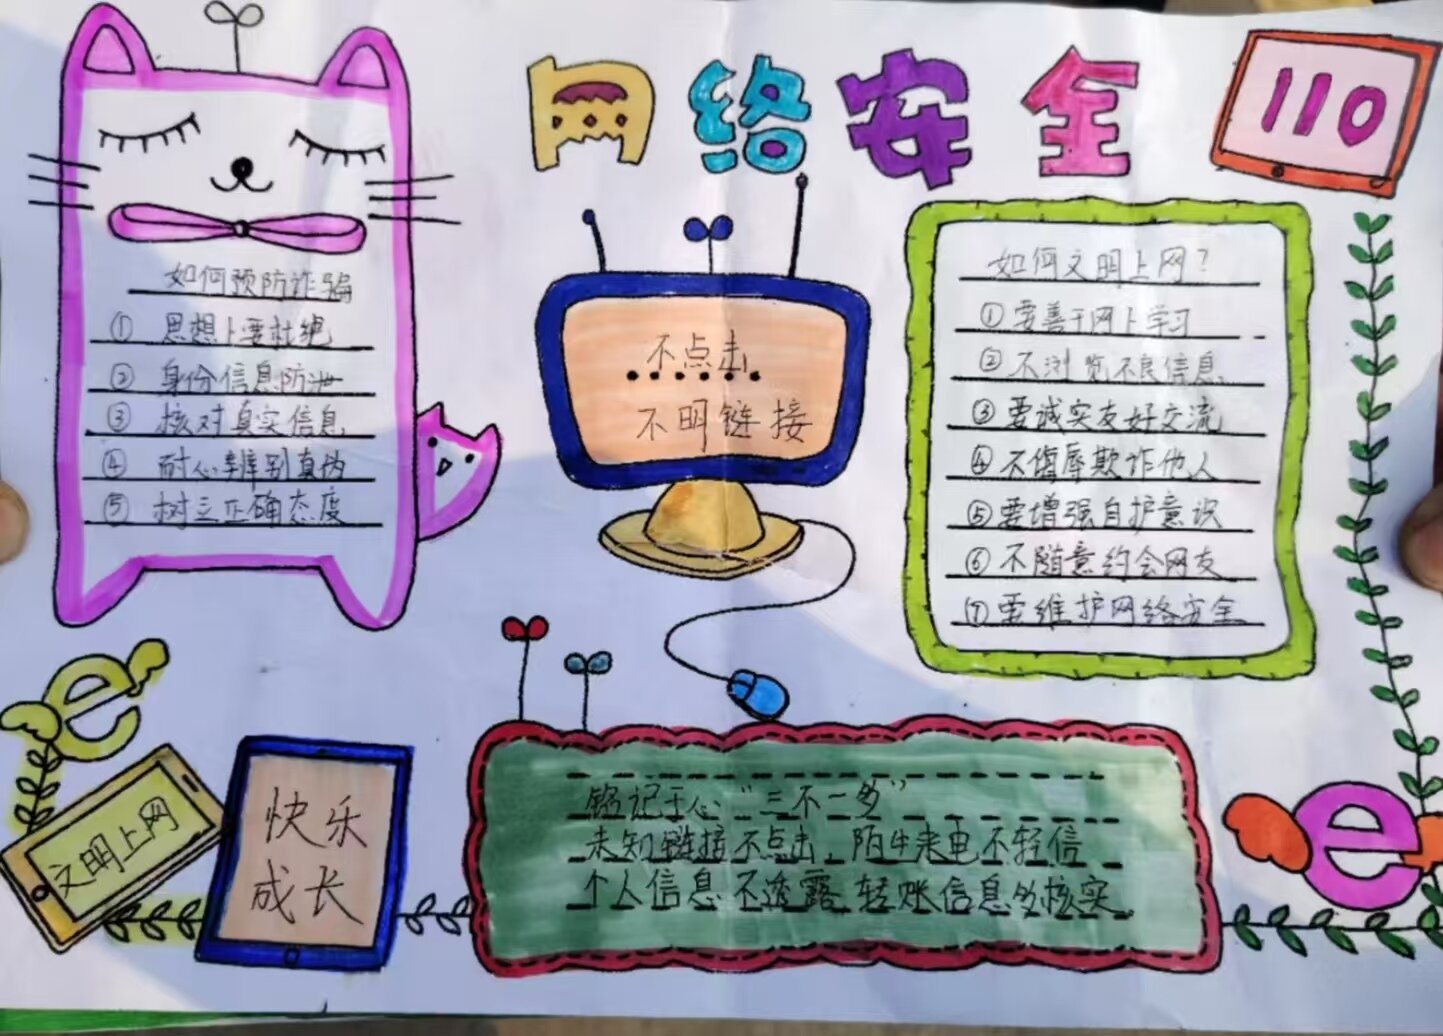 网络安全
110
如何预防诈骗
① 思想上要杜绝
② 身份信息防泄
③ 核对真实信息
④ 耐心辨别真伪
⑤ 树立正确态度
不点击
不明链接
如何文明上网?
①要善于网上学习
②不浏览不良信息
③要诚实友好交流
④不侮辱欺诈他人
⑤要增强自护意识
⑥不随意约会网友
⑦要维护网络安全
e
文明上网
快乐
成长
铭记于心“三不一多”
未知链接不点击 陌生来电不轻信
个人信息不透露 转账信息多核实
e